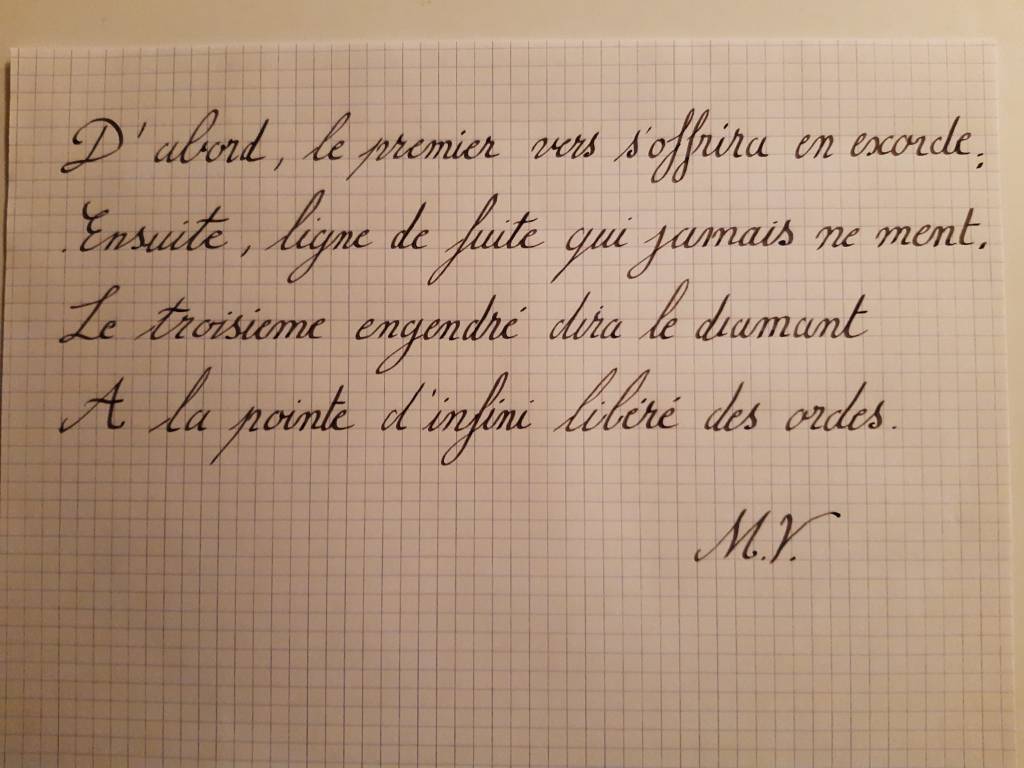 D'abord, le premier vers s'offrira en exorde;
Ensuite, ligne de fuite qui jamais ne ment.
Le troisieme engendré dira le diamant
A la pointe d'infini libéré des ordes.
M.V.